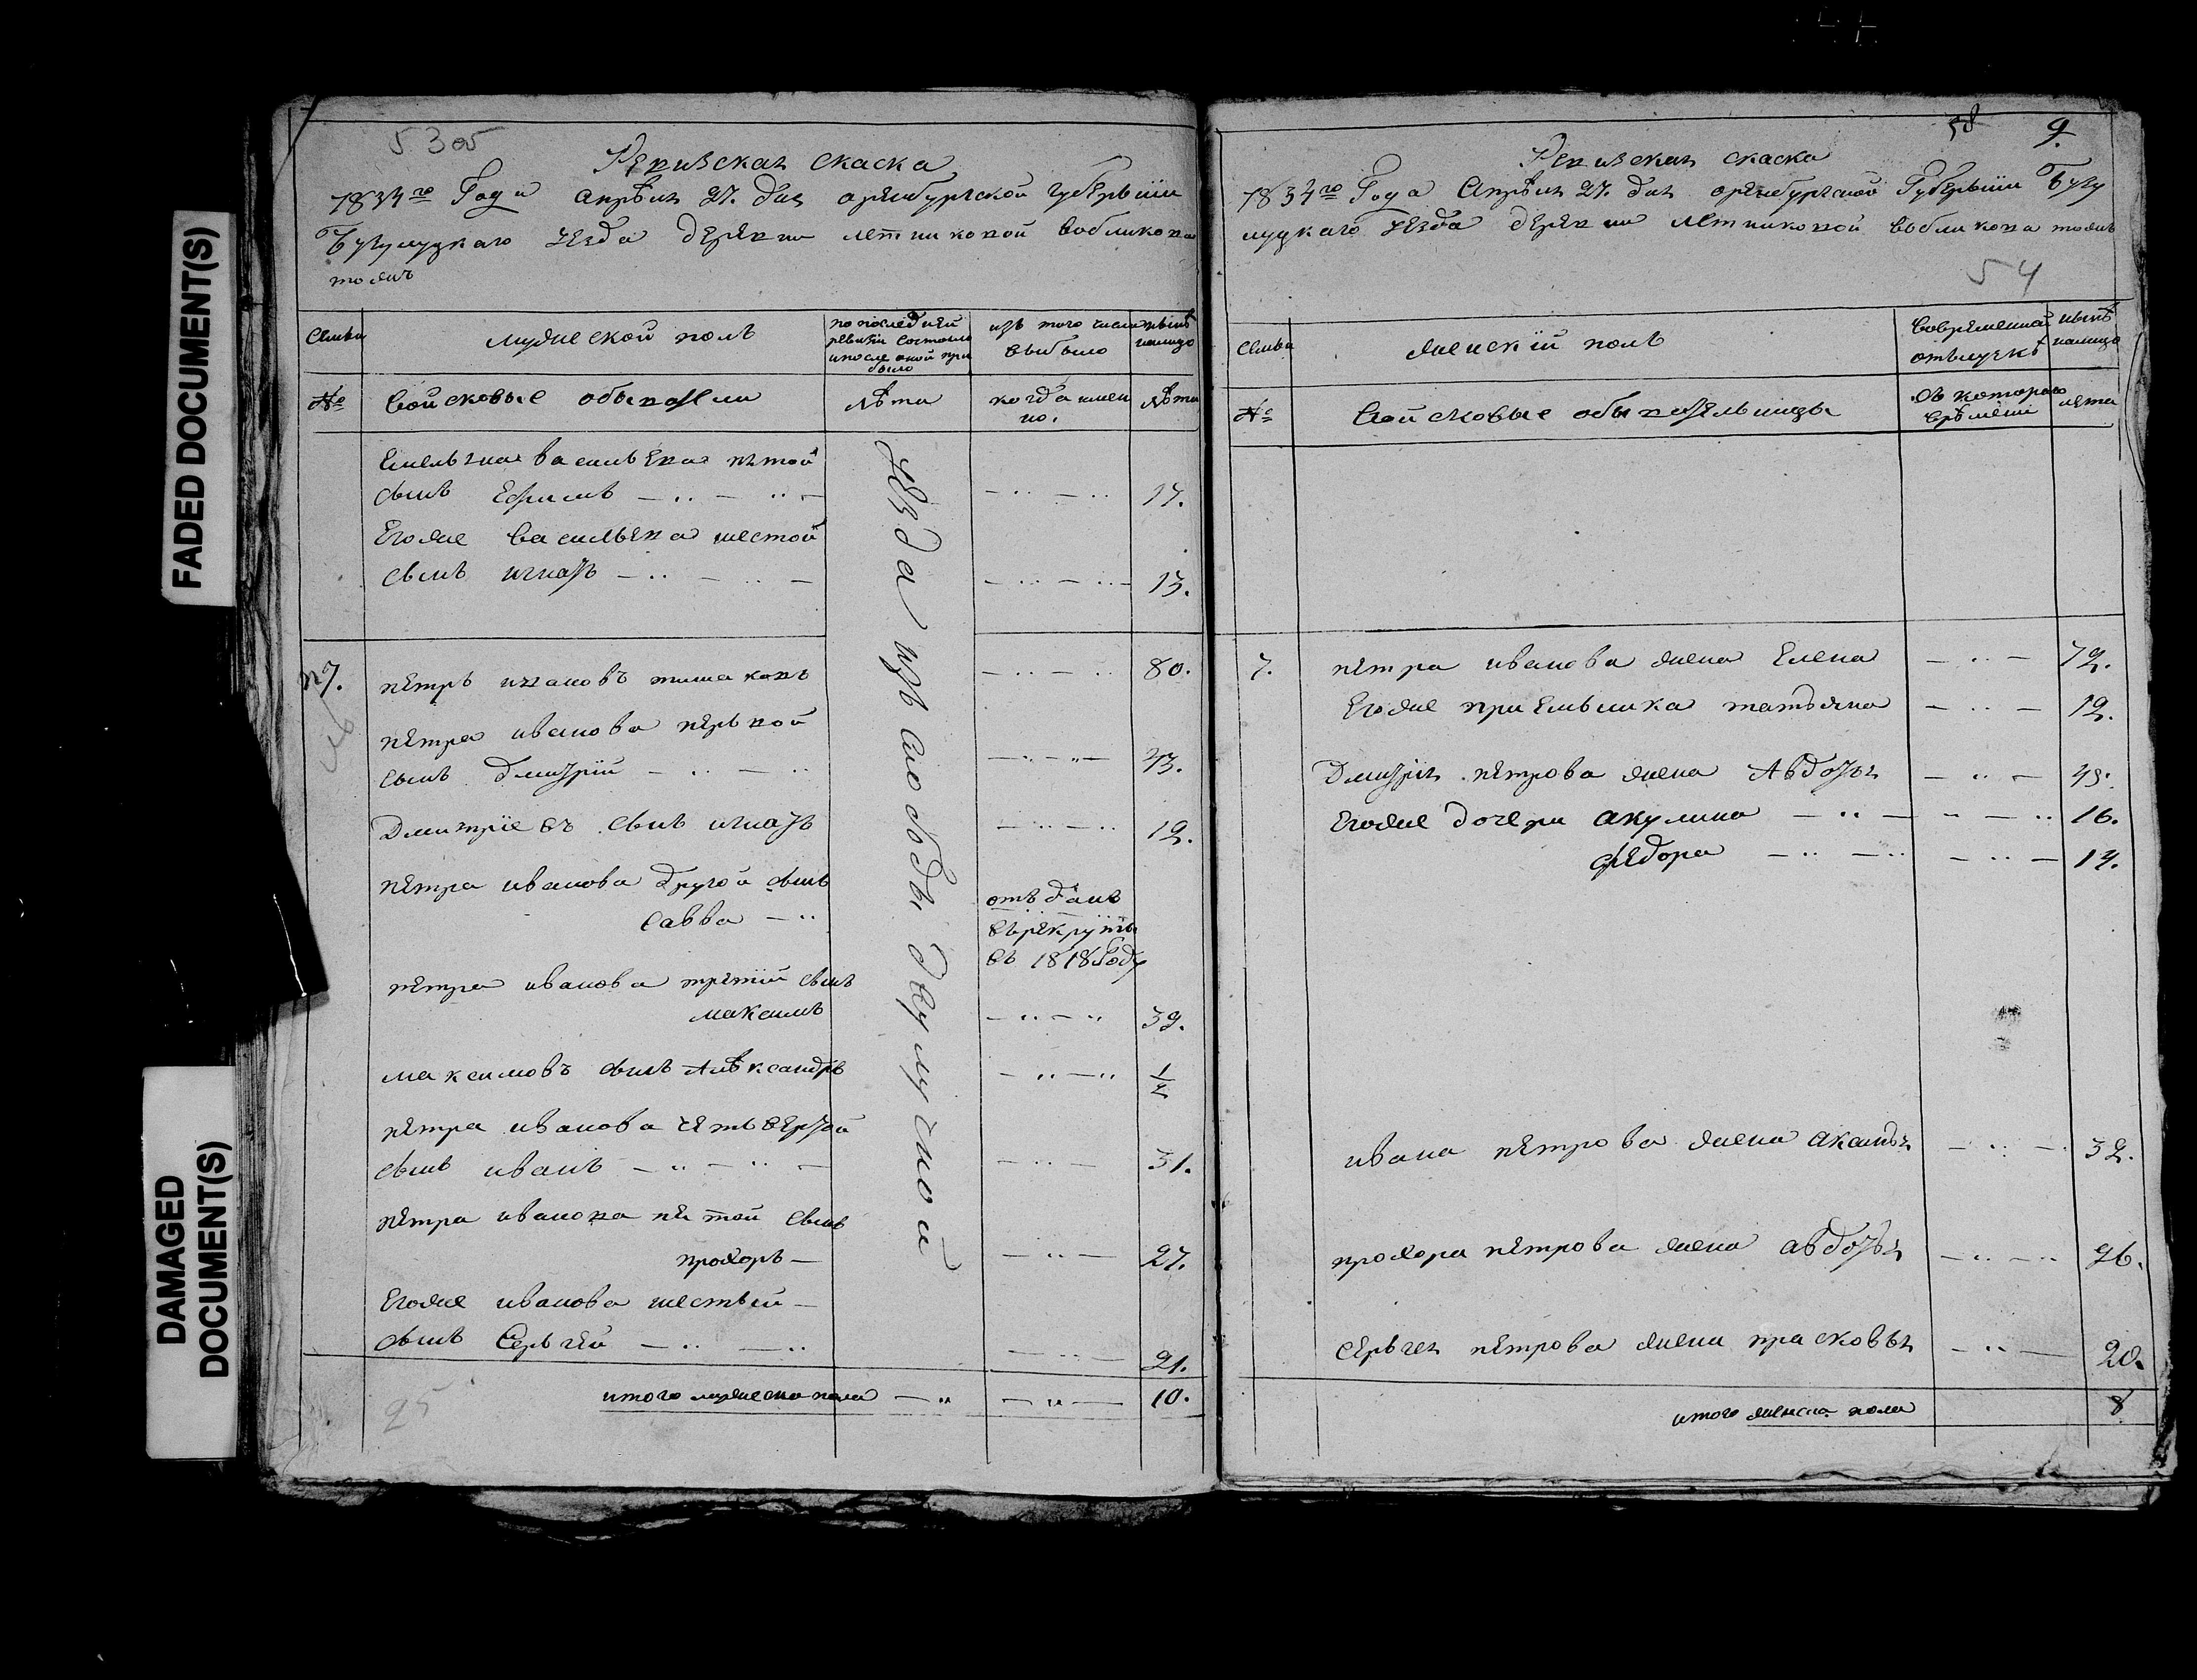 FADED DOCUMENT(S)
DAMAGED
DOCUMENT(S)
53об
Ревизская скаска
1834го Года апреля 27. дня оренбургской губернии
Бугулуцкаго уезда деревни летниковой вобликона
тожъ
Семьи
мужескои полъ
по последней
ревизіи состояло
и после оной при
было
изъ того числа
выбыло
ныне
налицо
№
Войсковые обыватели
Лѣта
когда имен
но.
Лѣта
Емельяна васильева пятой
сынъ Ефимъ — .. — .. — — .. — .. 17.
Егоже васильева шестой
сынъ игнатъ — .. — .. — — .. — .. — 13.
уезда изъ слободы двулучной
№7. петръ ивановъ тишаковъ — .. — .. 80.
петра иванова первой
сынъ дмитрій — .. — .. — .. — „ — 43.
Дмитріевъ сынъ игнатъ — .. — .. 12.
петра иванова другой сынъ
савва — ..
отъданъ
въ рекруты
въ 1818 году
петра иванова третій сынъ
максимъ — .. — „ 39.
максимовъ сынъ Алѣксандръ — .. — .. 1/2
петра иванова четьвертой
сынъ иванъ — .. — .. — — .. — 31.
петра иванова пятой сынъ
прохоръ — — .. — 27.
Егоже иванова шестый —
сынъ Сергѣй — .. — .. — .. — 21.
итого мужеска пола — „ — „ — 10.
25
58 9.
Ревизская скаска
1834го Года Апреля 27. дня оренбургской Губерніи Бугу
луцкаго уезда деревни Летниковой вобликона тожъ
54
семьи
женскій полъ
вовременной
отълучкѣ
ныне
налицо
№
Войсковые обывательницы
съ котораго
врѣмени
лета
7. петра иванова жена Елена — .. — 72.
Егоже приемышка татьяна — .. — 12.
Дмитрія петрова жена Авдотья — .. — 45.
Егоже дочери акулина — .. — — .. 16.
федора — .. — .. — .. — 14.
ивана петрова жена аксинья — .. — 32.
прохора петрова жена авдотья — .. — .. 26.
сергея петрова жена прасковья — .. — 20.
итого женска пола 8